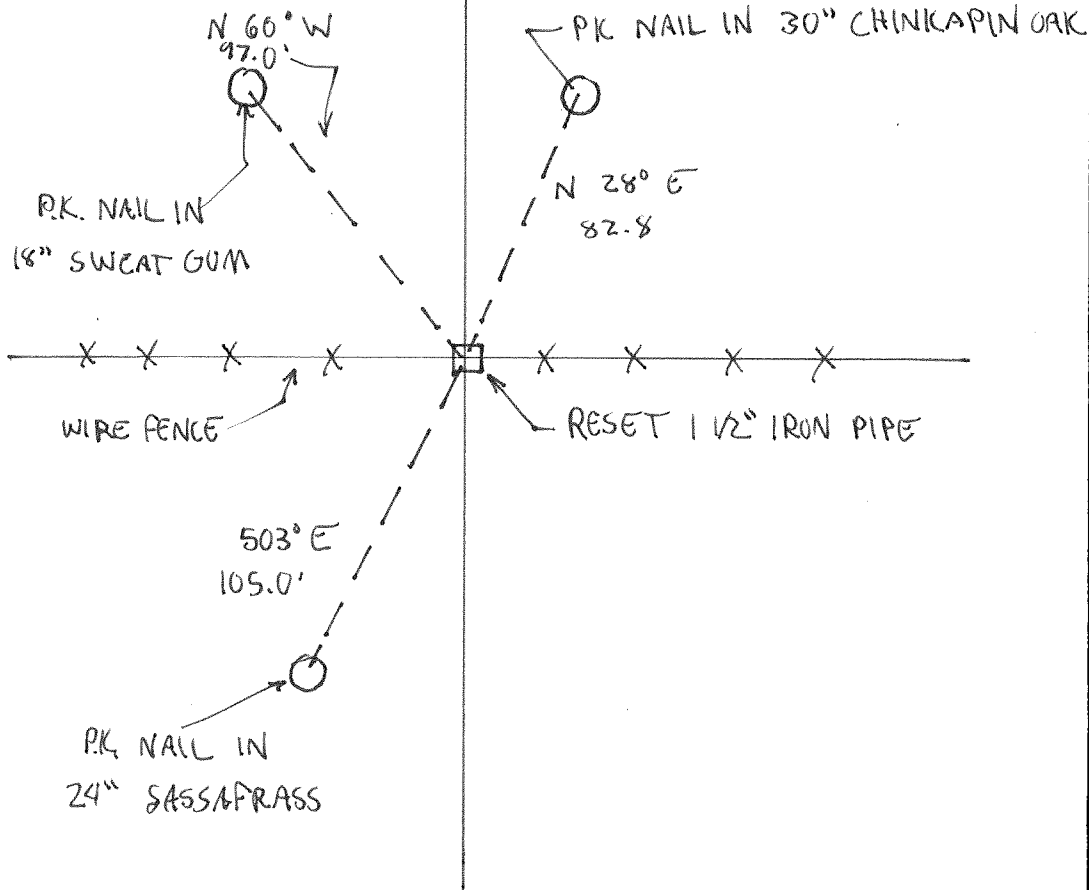 N 60° W
97.0'
PK NAIL IN 30" CHINKAPIN OAK
N 28° E
82.8
P.K. NAIL IN
18" SWEAT GUM
WIRE FENCE
RESET 1 1/2" IRON PIPE
S03° E
105.0'
P.K. NAIL IN
24" SASSAFRASS